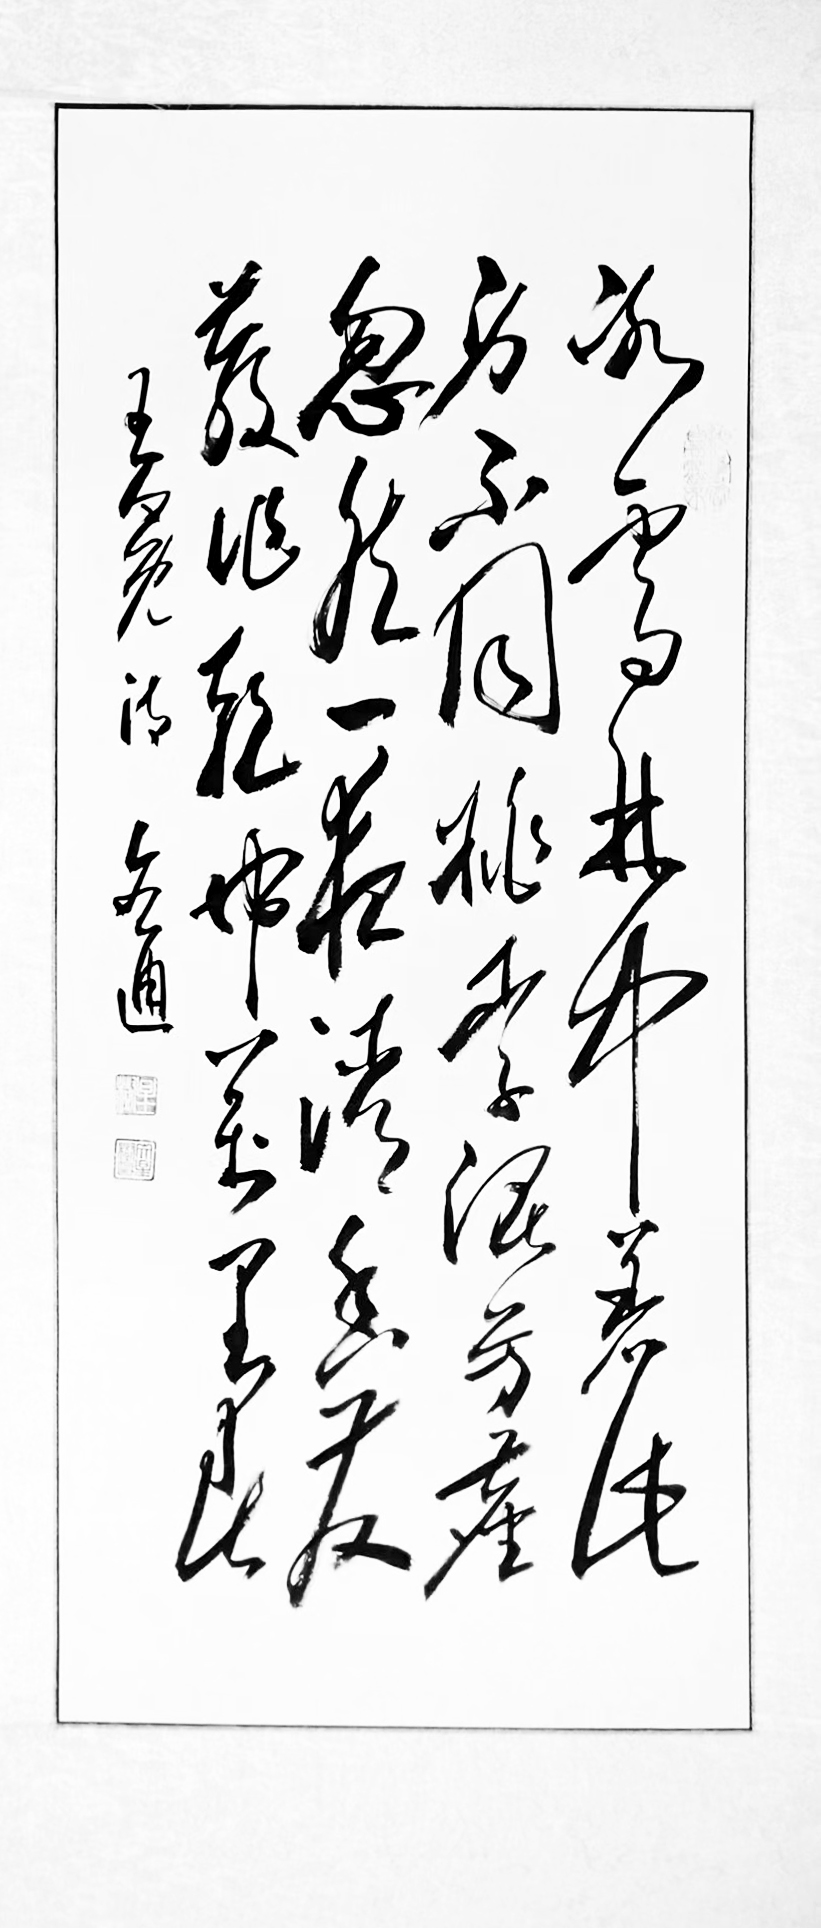 冰雪林中著此
身不同桃李混芳塵
忽然一夜清香發
散作乾坤萬里春
王冕詩